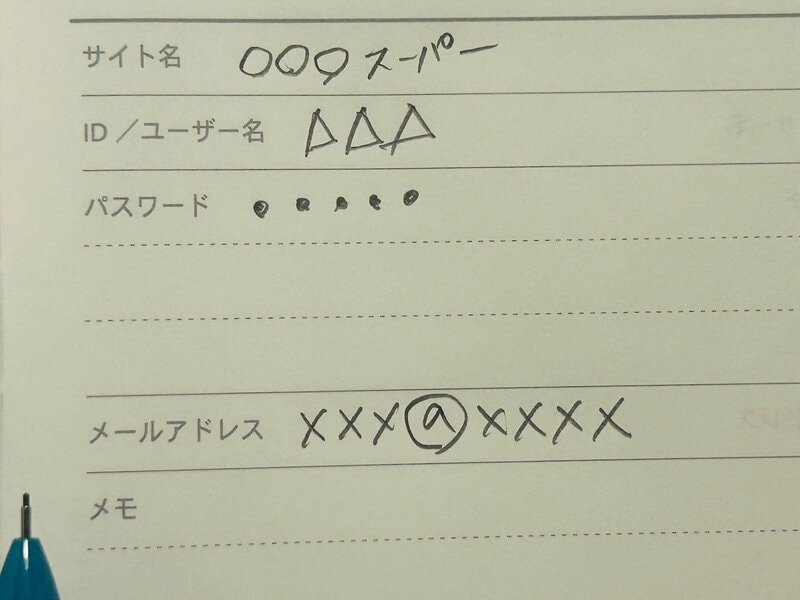 サイト名 〇〇〇スーパー
ID／ユーザー名 △△△
パスワード ●●●●●
メールアドレス xxx@xxxx
メモ